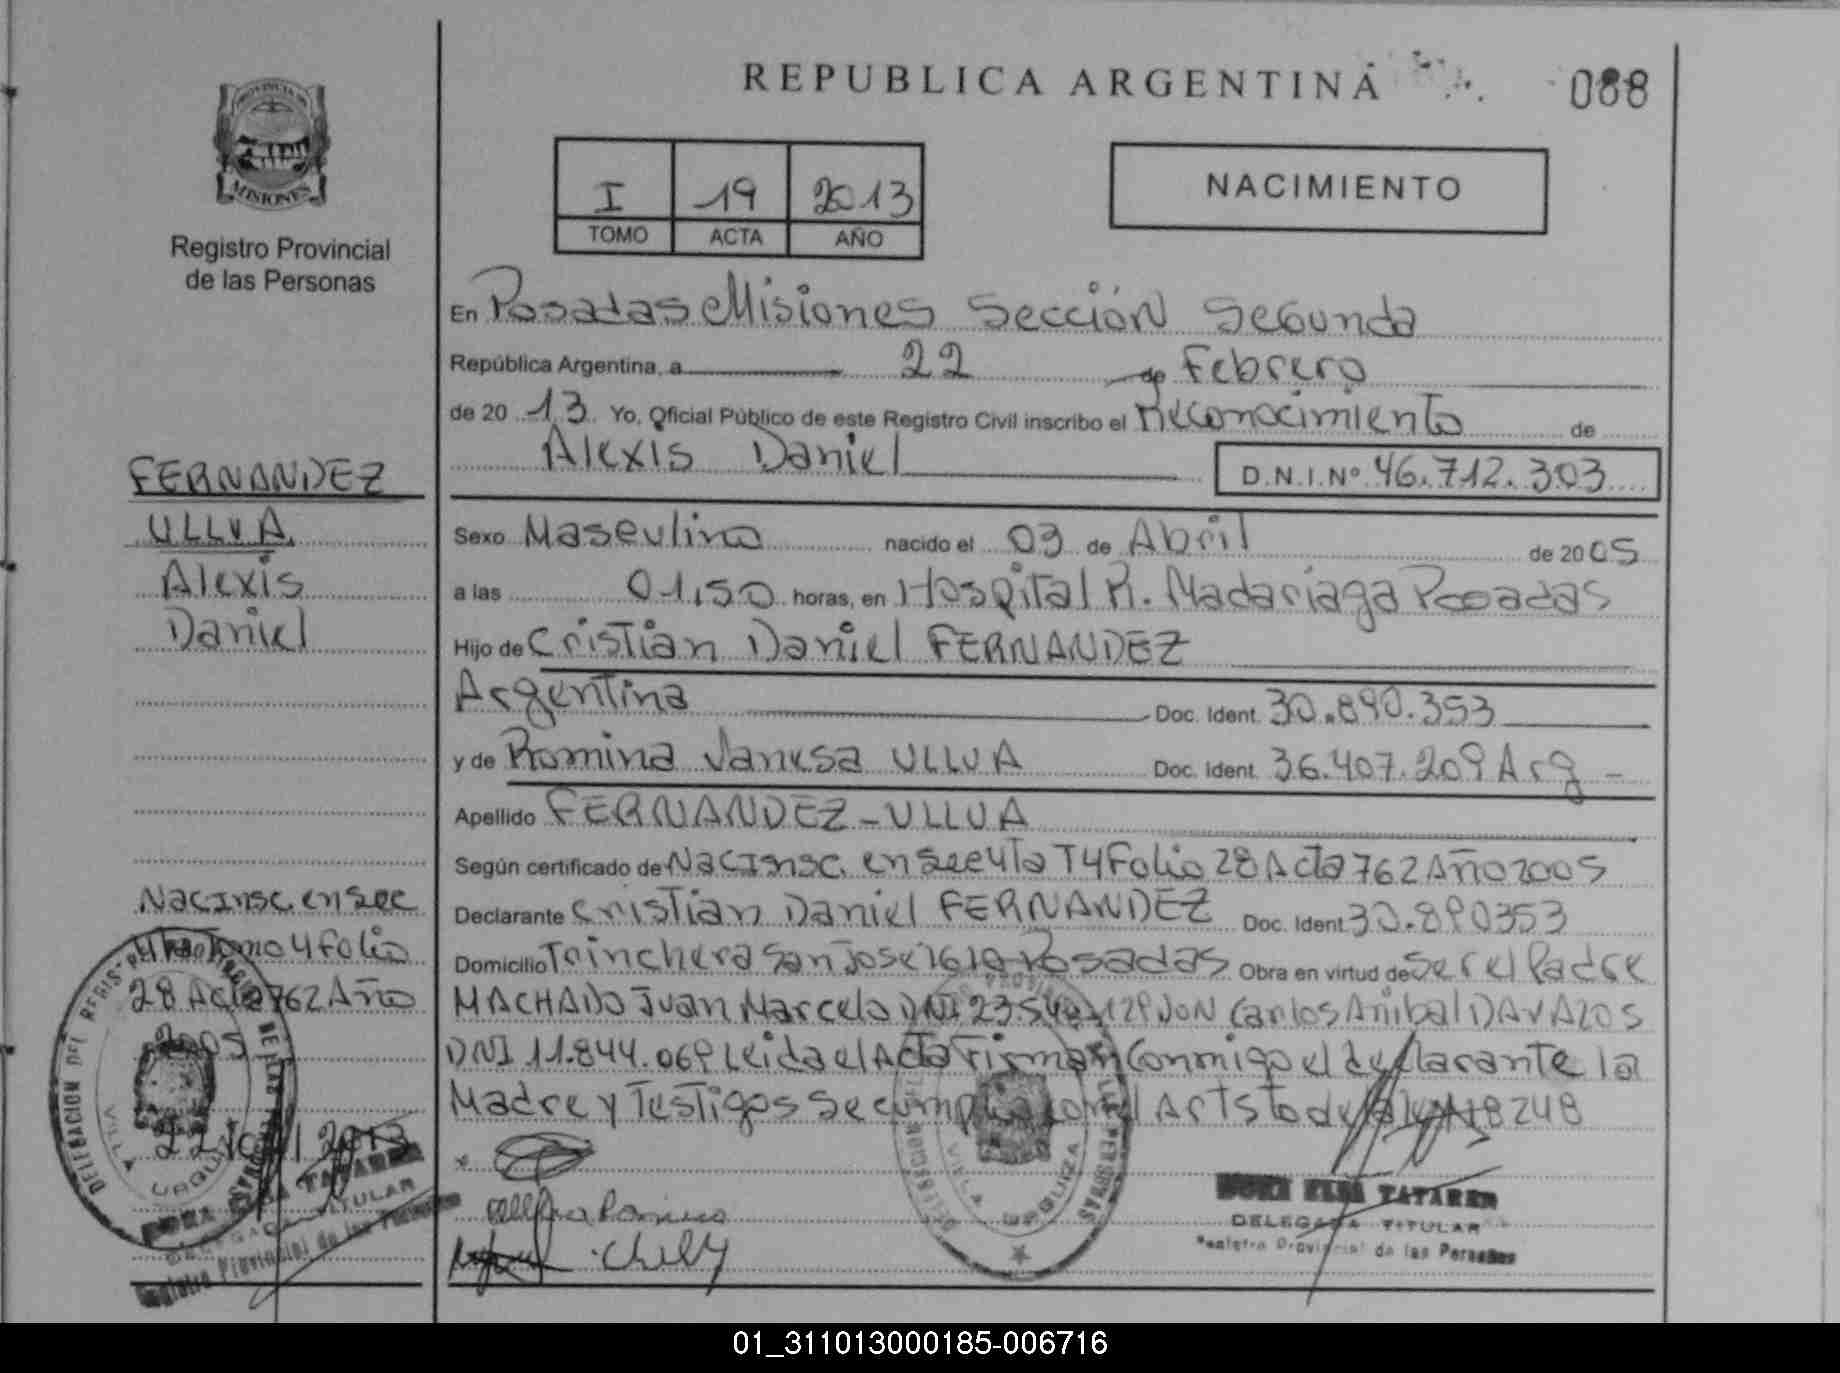 REPUBLICA ARGENTINA
088
PROVINCIA DE
MISIONES
Registro Provincial
de las Personas
I 19 2013
TOMO ACTA AÑO
NACIMIENTO
En Posadas Misiones Sección Segunda
República Argentina, a 22 de Febrero
de 20 13 Yo, Oficial Público de este Registro Civil inscribo el Reconocimiento de
Alexis Daniel D.N.I.Nº 46.712.303
FERNANDEZ
ULLUA
Alexis
Daniel
Sexo Masculino nacido el 03 de Abril de 2005
a las 01,50 horas, en Hospital R. Madariaga Posadas
Hijo de Cristian Daniel FERNANDEZ
Argentina Doc. Ident. 30.890.353
y de Romina Vanesa ULLUA Doc. Ident. 36.407.209 Arg
Apellido FERNANDEZ-ULLUA
Según certificado de Nac Insc. en Sec 4ta T4 Folio 28 Acta 762 Año 2005
Declarante Cristian Daniel FERNANDEZ Doc. Ident. 30.890353
Domicilio Trinchera San José Posadas Obra en virtud de Ser el Padre
MACHADO Juan Marcelo DNI Carlos Anibal DAVALOS
DNI 11.844.069 Leida el Acta Firman Conmigo el declarante la
Madre y Testigos Se 18248
Nac Insc. en Sec
4ta Tomo 4 folio
28 Acta 762 Año
2005
22 2013
DELEGACION DEL REGIS.
VILLA URQUIZA
TATAREN
DELEGADA TITULAR
Registro Provincial de las Personas
VILLA URQUIZA
TATAREN
DELEGADA TITULAR
Registro Provincial de las Personas
01_311013000185-006716